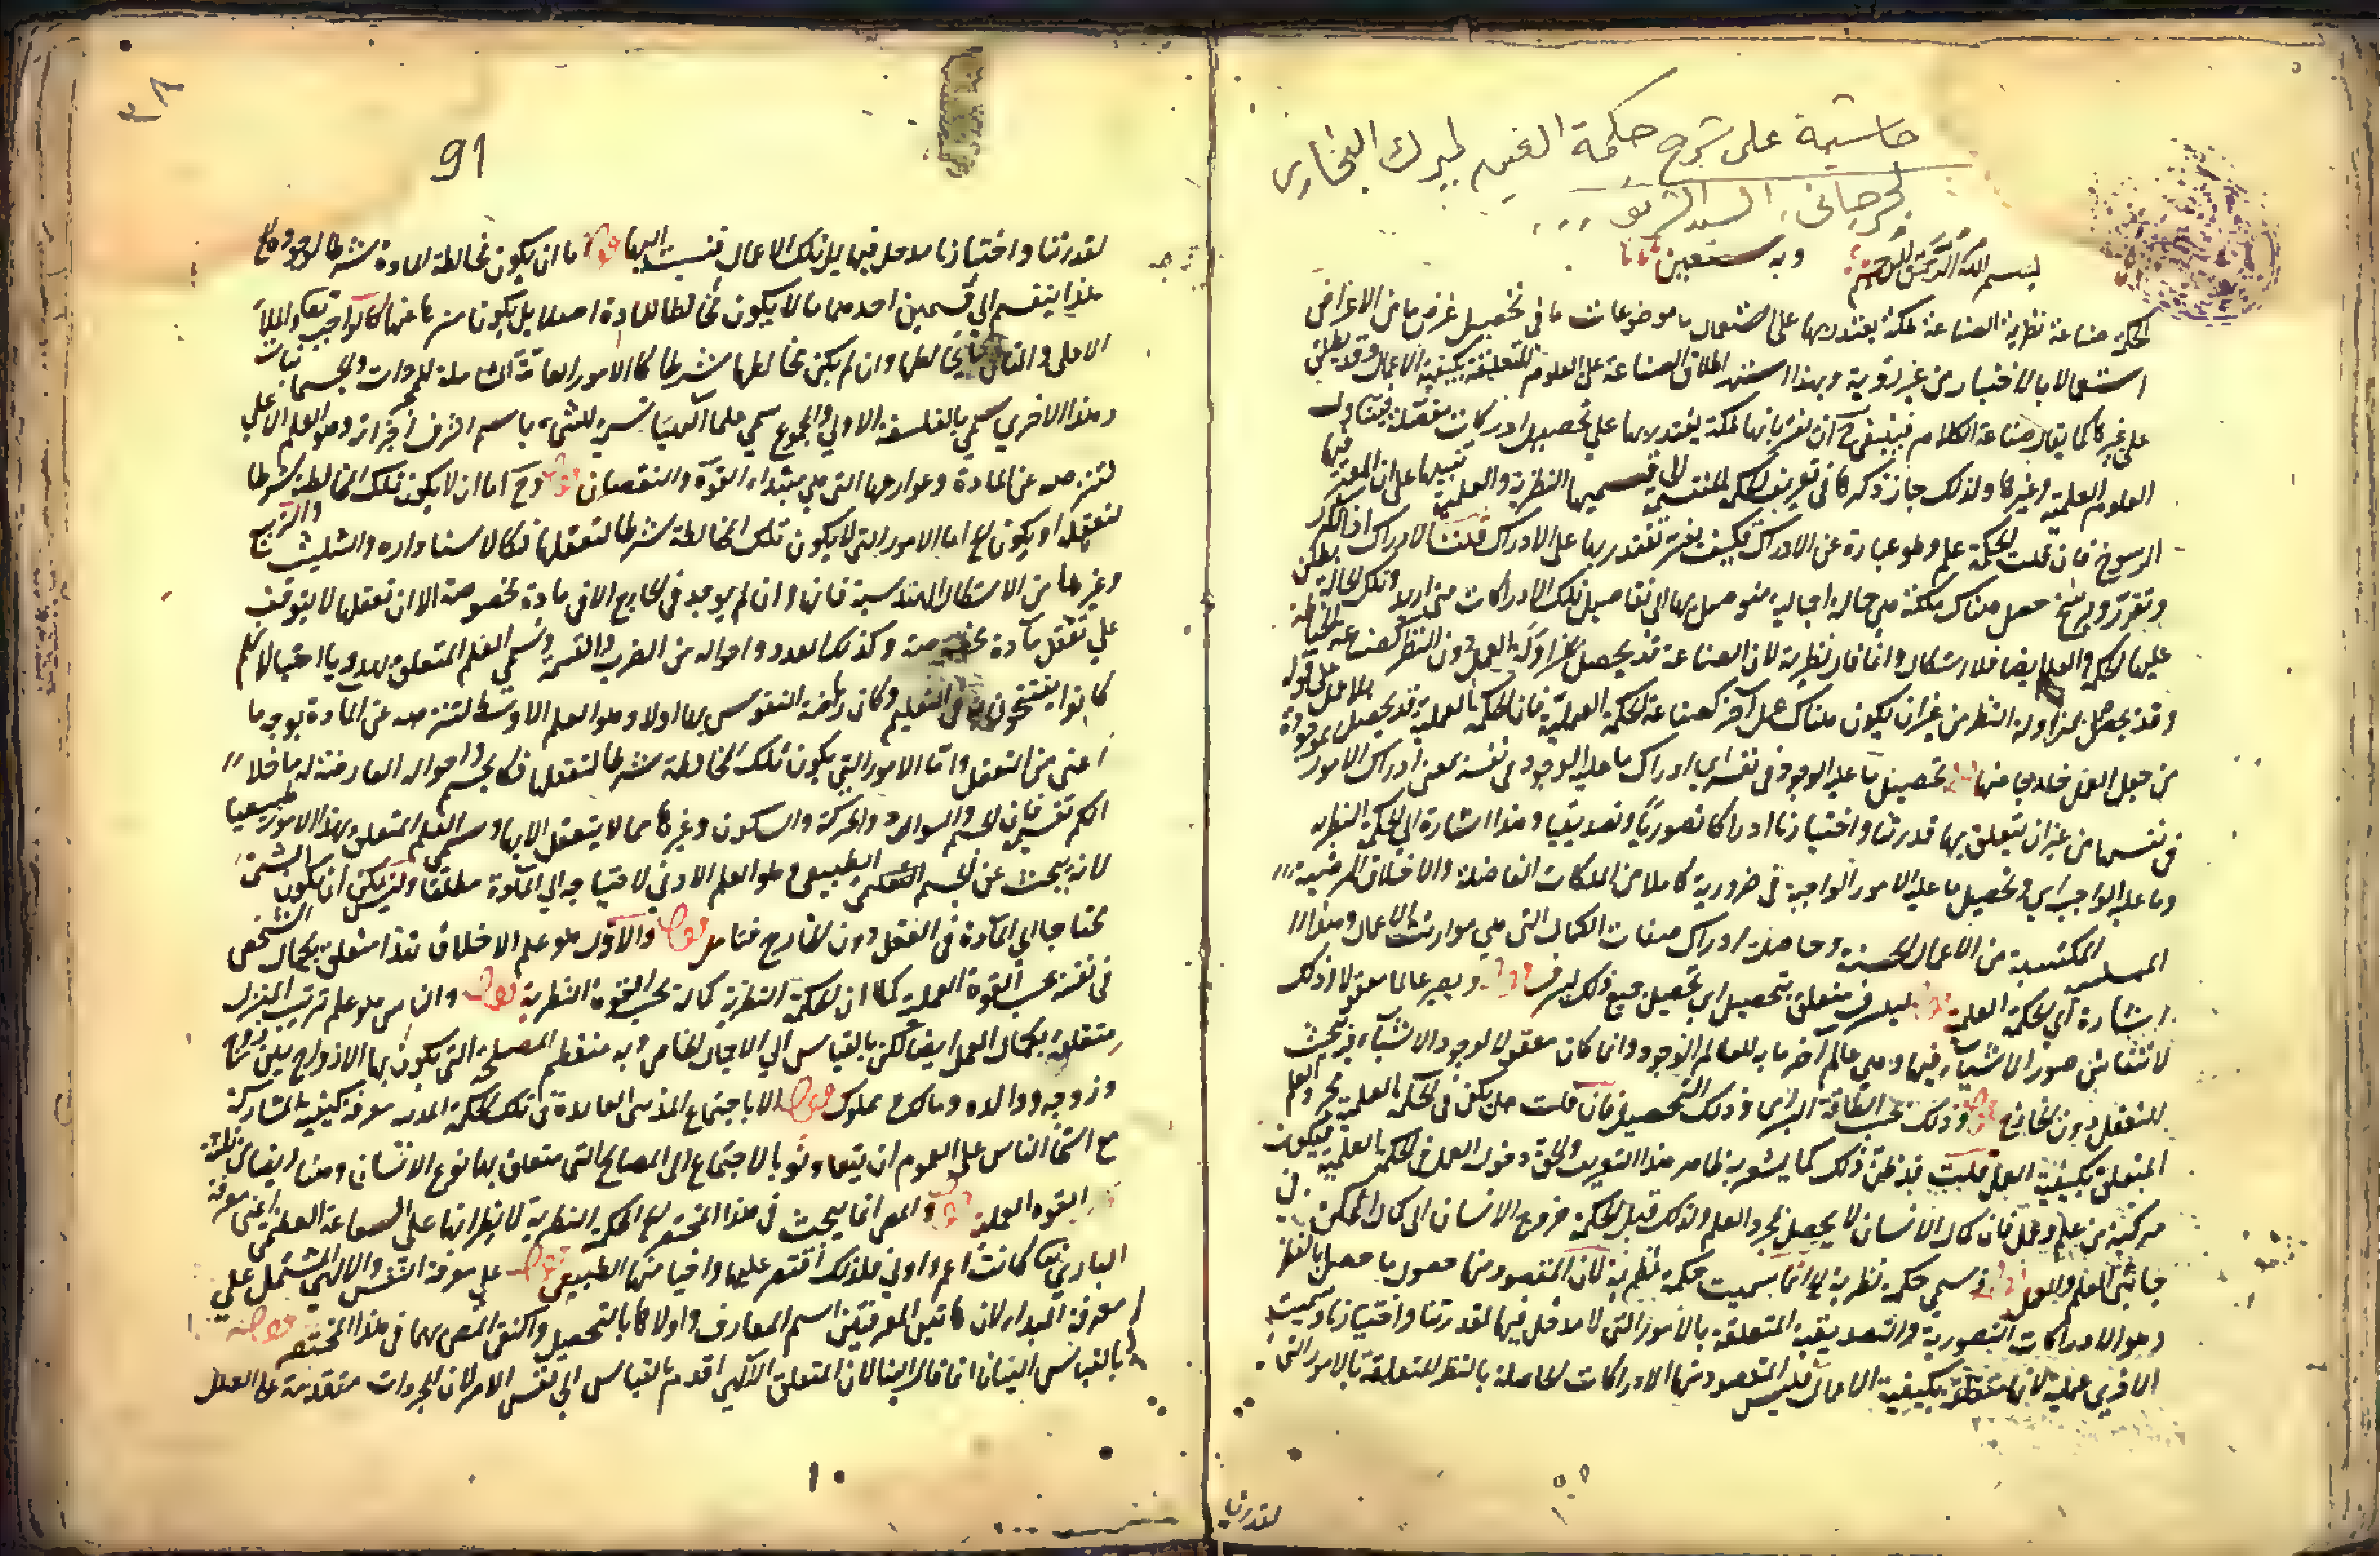 حاشية على شرح حكمة العين لميرك البخاري
لجرجاني السيد الشريف ...
بسم الله الرحمن الرحيم وبه نستعين
الحكمة صناعة نظرية الصناعة ملكة يقتدر بها على استعمال ما موضوعات ما في تحصيل غرض ما من الاغراض
استعمالا بالاختيار من غير روية وبهذا اشتهر اطلاق الصناعة على العلوم المتعلقة بكيفية الاعمال وقد يطلق
على غيرها كما يقال صناعة الكلام فينبغي ح ان تفسر بانها ملكة يقتدر بها علي تحصيل ادراكات مفصلة فيتناول
العلوم العلمية وغيرها ولذلك جاز ذكرها في تعريف الحكمة المنقسمة الى قسميها النظرية والعملية تنبيها على ان المعتبر فيها
الرسوخ فان قلت الحكمة علم وهو عبارة عن الادراك فكيف تفسر تقتدر بها على الادراك قلت الادراك اذا تكرر
وتقرر ويرسخ حصل هناك ملكة هي حالة اجمالية متوصل بها الى تفاصيل تلك الادراكات متى اريد وتلك الحالة يطلق
عليها الحكمة والعلم ايضا فلا اشكال وانما قال نظرية لان الصناعة قد يحصل بمزاولة العمل دون النظر كصناعة الخياطة
وقد يحصل بمزاولة النظر من غير ان يكون هناك عمل آخر كصناعة الحكمة العملية فان الحكمة العملية قد يحصل
من جعل العمل خارجا عنها تحصيل ما عليه الوجود في نفسه اي ادراك ما عليه الوجود في نفسه بمعنى ادراك الامور
في نفسها من غير ان يتعلق بها قدرتنا واختيارنا ادراكا تصوريا وتصديقيا وهذا اشارة الى الحكمة النظرية
وما عليه الواجب اي وتحصيل ما عليه الامور الواجبة في ضرورية كاملا من الملكات الفاضلة والاخلاق المرضية
المكتسبة من الاعمال الحسنة وحاصله ادراك صفات الكمال التي هي موارث الاعمال وهذا
اشارة الى الحكمة العملية ليشرف متعلق بتحصيل اي تحصيل جميع ذلك ليشرف ويصير عالما معقولا وذلك
لانتقاش صور الاشياء فيها وهي عالم آخر مابه للعالم الوجود وانما كان معقولا لوجود الاشياء فيه بحيث
للتعقل دون الخارج وذلك بحسب الطاقة البشرية اي وذلك التحصيل فان قلت هل يكفي في الحكمة العملية مجرد العلم
المتعلق بكيفية العمل قلت قد ظن ذلك كما يشعر به ظاهر هذا التعريف والحق دخول العمل في الحكمة العملية فيكون
مركبة من علم وعمل فان كمال الانسان لا يحصل بمجرد العلم ولذلك قيل الحكمة خروج الانسان الى كماله الممكن في
جانبي العلم والعمل سمى حكمة نظرية الخ انما سميت حكمة نظرية لان المقصود منها حصول ما حصل بالنظر
وهو الادراكات التصورية والتصديقية المتعلقة بالامور التي لا مدخل فيها لقدرتنا واختيارنا وسميت
الاخرى عملية لانها متعلقة بكيفية الاعمال فليس المقصود منها الادراكات الحاصلة بالنظر المتعلقة بالامور التي
لقدرتنا
91
لقدرتنا واختيارنا مدخل فيها بل تلك الاعمال فنسبت اليها اما ان يكون مخالطة المادة شرطا لوجوده الخ
هذا ينقسم الي قسمين احدهما ما لا يكون مخالطا للمادة اصلا بل يكون منزها عنها كالواجب تعالى والملأ
الاعلى والثاني ما يخالطها وان لم يكن مخالطها شرطا كالامور العامة الشاملة للمجردات والجسمانيات
وهذا الاخرى سمي بالفلسفة الاولي والمجموع سمي علما آلهيا تسمية للشيء باسم اشرف اجزائه وهو العلم الاعلي
لتنزهه عن المادة وعوارضها التي هي مبتداء القوة والنقصان وح اما ان لا يكون تلك المخالطة شرطا
لتعقله او يكون الخ اما الامور التي لا يكون تلك المخالطة شرطا لتعقلها فكالاستدارة والتثليث والتربيع
وغيرها من الاشكال الهندسية فانها وان لم يوجد في الخارج الا في مادة مخصوصة الا ان تعقلها لا يتوقف
علي تعقل مادة مخصوصة وكذلك العدد واحواله من الضرب والقسمة وسمي العلم المتعلق بهذا رياضيا لانهم
كانوا يفتتحون به في التعليم وكان رياضة النفوس بها اولا وهو العلم الاوسط لتنزهه عن المادة بوجه ما
اعني من التعقل واما الامور التي يكون تلك المخالطة شرطا لتعقلها فكالجسم واحواله العارضة له
فان الجسم والسواد والحركة والسكون وغيرها مما لا يتعقل الا بها وسمي العلم المتعلق بهذا الامور طبيعيا
لانه يبحث عن الجسم الطبيعي وهو العلم الادنى لاحتياجه الى المادة مطلقا وليس يمكن ان يكون الشيء
محتاجا الي المادة في التعقل دون الخارج فتامل والاول هو علم الاخلاق هذا متعلق بكمال الشخص
في نفسه بحسب القوة العملية كما ان الحكمة النظرية كماله بحسب القوة النظرية والثاني هو علم تدبير المنزل
متعلق بكمال العمل ايضا لكن بالقياس الي الاجتماع الخاص وبه منتظم المصلحة التي يكون بها الازدواج بين زوج
وزوجة ووالد وولد ومالك ومملوك الا باجتماع المدني الفائدة في تلك الحكمة المدنية معرفة كيفية المشاركة
مع اشخاص الناس على العموم ان يتعاونوا بالاجتماع الى المصالح التي متعلق بها نوع الانسان
القوة العملية والمص انما يبحث في هذا المختصر الخ الحكمة النظرية
الباري تعالى كانت اعم واولى فلذلك اقتصر عليها واخيا منها الطبيعي علي معرفة النفس والالهي المشتمل علي
معرفة المبداء لان هاتين المعرفتين اسم المعارف واولاها بالتحصيل واكتفى المص بهما في هذا المختصر
بالقياس الينا انما قال الينا لان المتعلق الآلهي اقدم بالقياس الي نفس الامر لان المجردات متقدمة على العلل